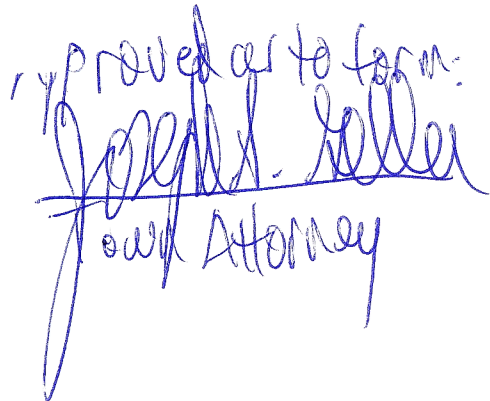 Approved as to form:
Joseph S. Geller
Town Attorney